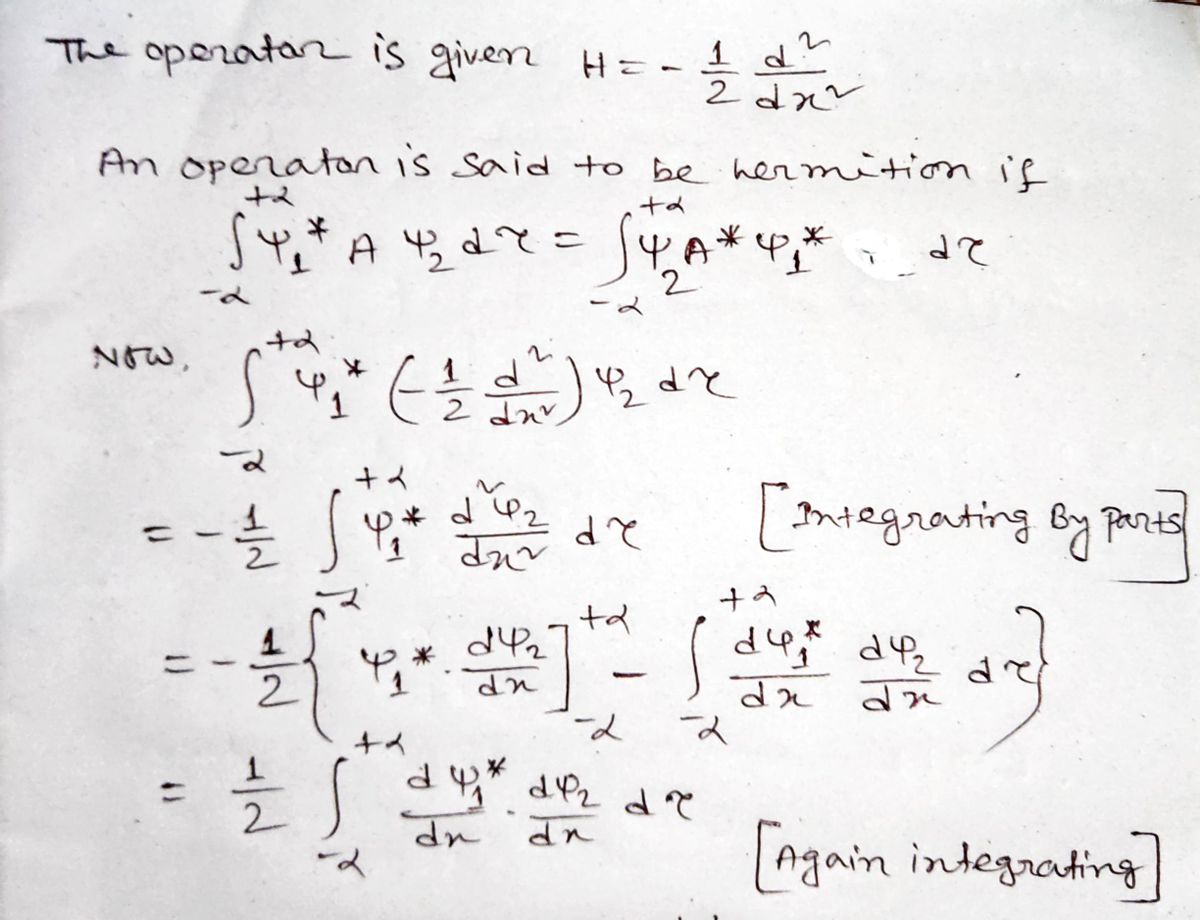 The operator is given H = - 1/2 d²/dx²
An operator is said to be hermition if
∫_{-α}^{+α} ψ₁* A ψ₂ dτ = ∫_{-α}^{+α} ψ₂ A* ψ₁* dτ
Now, ∫_{-α}^{+α} ψ₁* (- 1/2 d²/dx²) ψ₂ dτ
= - 1/2 ∫_{-α}^{+α} ψ₁* d²ψ₂/dx² dτ [Integrating By parts]
= - 1/2 { ψ₁* · dψ₂/dx ]_{-α}^{+α} - ∫_{-α}^{+α} dψ₁*/dx dψ₂/dx dτ }
= 1/2 ∫_{-α}^{+α} dψ₁*/dx · dψ₂/dx dτ
[Again integrating]